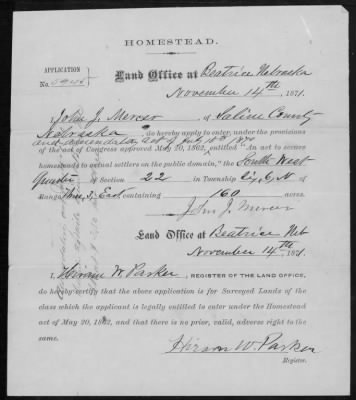 HOMESTEAD.
APPLICATION
No.
Land Office at Beatrice Nebraska
November 14th, 1871.
I, John J. Mercer of Saline County
Nebraska do hereby apply to enter, under the provisions
and amendatory act of July 10th 1870
of the act of Congress approved May 20, 1862, entitled "An act to secure
homesteads to actual settlers on the public domain," the South West
Quarter of Section 22 in Township Six, 6, N of
Range Three, 3, East containing 160 acres.
John J. Mercer
Land Office at Beatrice Neb
November 14th, 1871.
I, Hiram W. Parker, REGISTER OF THE LAND OFFICE,
do hereby certify that the above application is for Surveyed Lands of the
class which the applicant is legally entitled to enter under the Homestead
act of May 20, 1862, and that there is no prior, valid, adverse right to the
same.
Hiram W. Parker
Register.